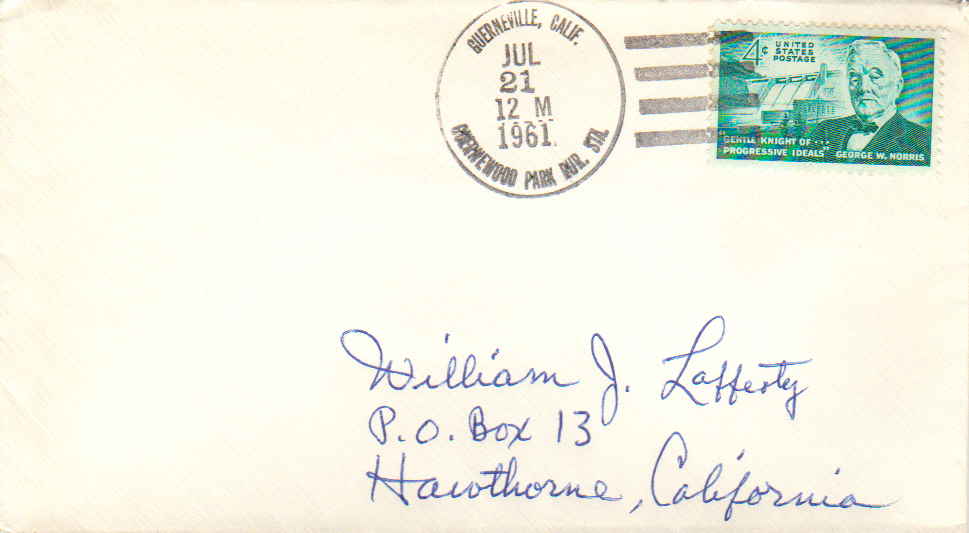 GUERNEVILLE, CALIF.
JUL
21
12 M
1961
GUERNEWOOD PARK RUR. STA.
4¢ UNITED
STATES
POSTAGE
"GENTLE KNIGHT OF ...
PROGRESSIVE IDEALS" GEORGE W. NORRIS
William J. Lafferty
P.O. Box 13
Hawthorne, California